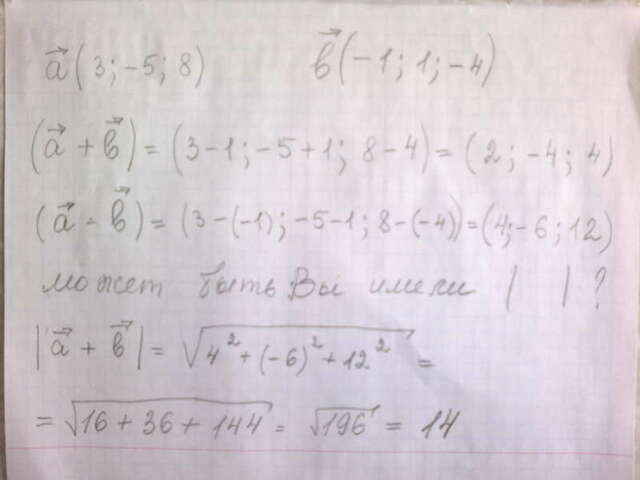 a⃗ (3; -5; 8) b⃗ (-1; 1; -4)
(a⃗ + b⃗) = (3-1; -5+1; 8-4) = (2; -4; 4)
(a⃗ - b⃗) = (3-(-1); -5-1; 8-(-4)) = (4; -6; 12)
может быть Вы имели | | ?
|a⃗ + b⃗| = √(4² + (-6)² + 12²) =
= √(16 + 36 + 144) = √196 = 14